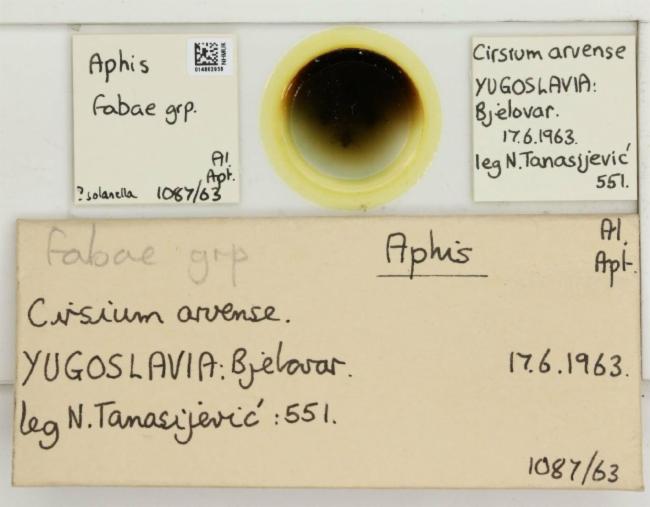 Aphis
fabae grp.
Al.
Apt.
? solanella 1087/63
NHMUK
014863958
Cirsium arvense
YUGOSLAVIA:
Bjelovar.
17.6.1963.
leg N.Tanasijević
551.
fabae grp
Aphis
Al.
Apt.
Cirsium arvense.
YUGOSLAVIA: Bjelovar. 17.6.1963.
leg N.Tanasijević : 551.
1087/63